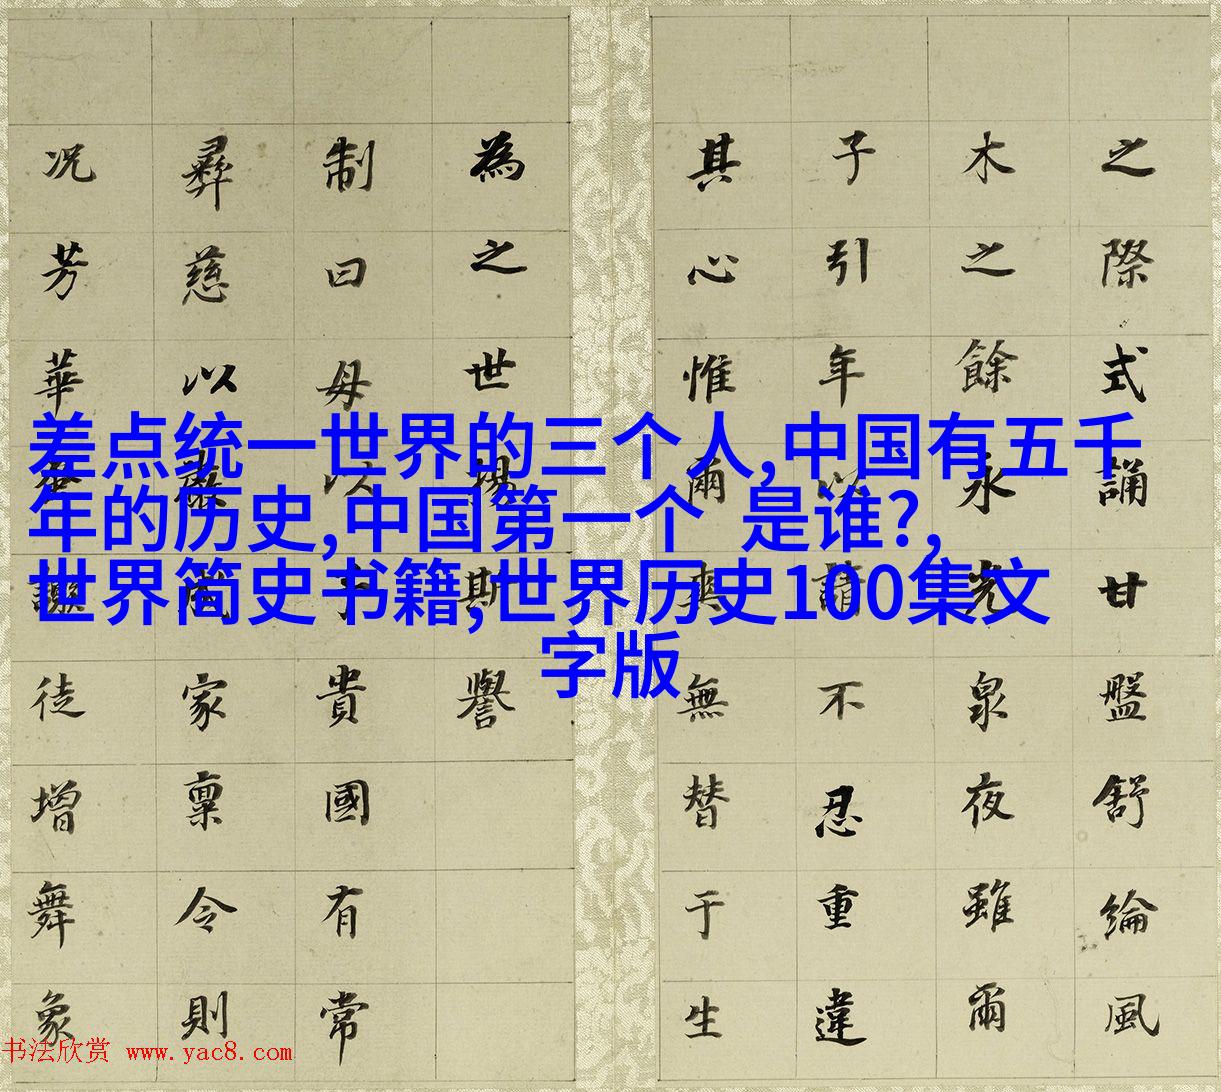 差点统一世界的三个人,中国有五千
年的历史,中国第一个 是谁?,
世界简史书籍,世界历史100集文
字版
之際式誦甘盤舒綸風
木之餘永光泉夜雖爾
子引年以請不忍重違
其心惟爾爽無替于生
為之世揚斯譽
制曰毋以子貴國有常
彝慈以嚴家稟令則
况芳華徒增舞象
书法欣赏 www.yac8.com